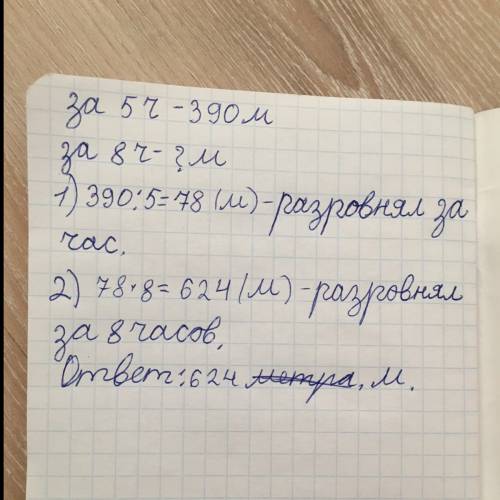 за 5ч - 390м
за 8ч - ? м
1) 390:5=78 (м) - разровнял за
час.
2) 78·8=624 (м) - разровнял
за 8 часов.
Ответ: 624 метра, м.